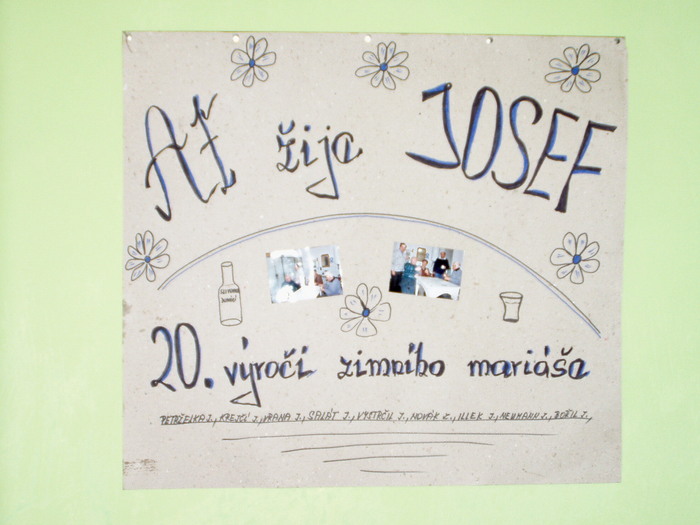 Ať žije JOSEF
20. výročí zimního mariáša
PETRŽELKA J., KREJČÍ J., VRANA J., SALÁT J., VYSTRČIL J., NOVÁK Z., ILLEK J., NEUMANN J., J.,